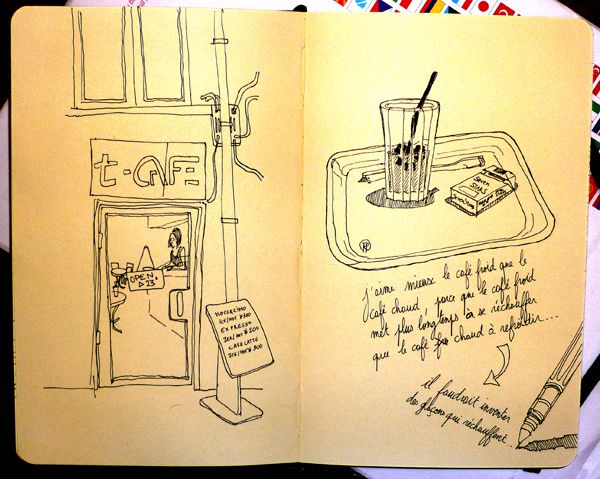 t-CAFE
OPEN
▷ 23°
ESPRESSO
CAFE LATTE
SEVEN
STARS
j'aime mieux le café froid que le
café chaud, parce que le café froid
met plus longtemps à se réchauffer
que le café chaud à refroidir...
il faudrait inventer
des glaçons qui réchauffent...